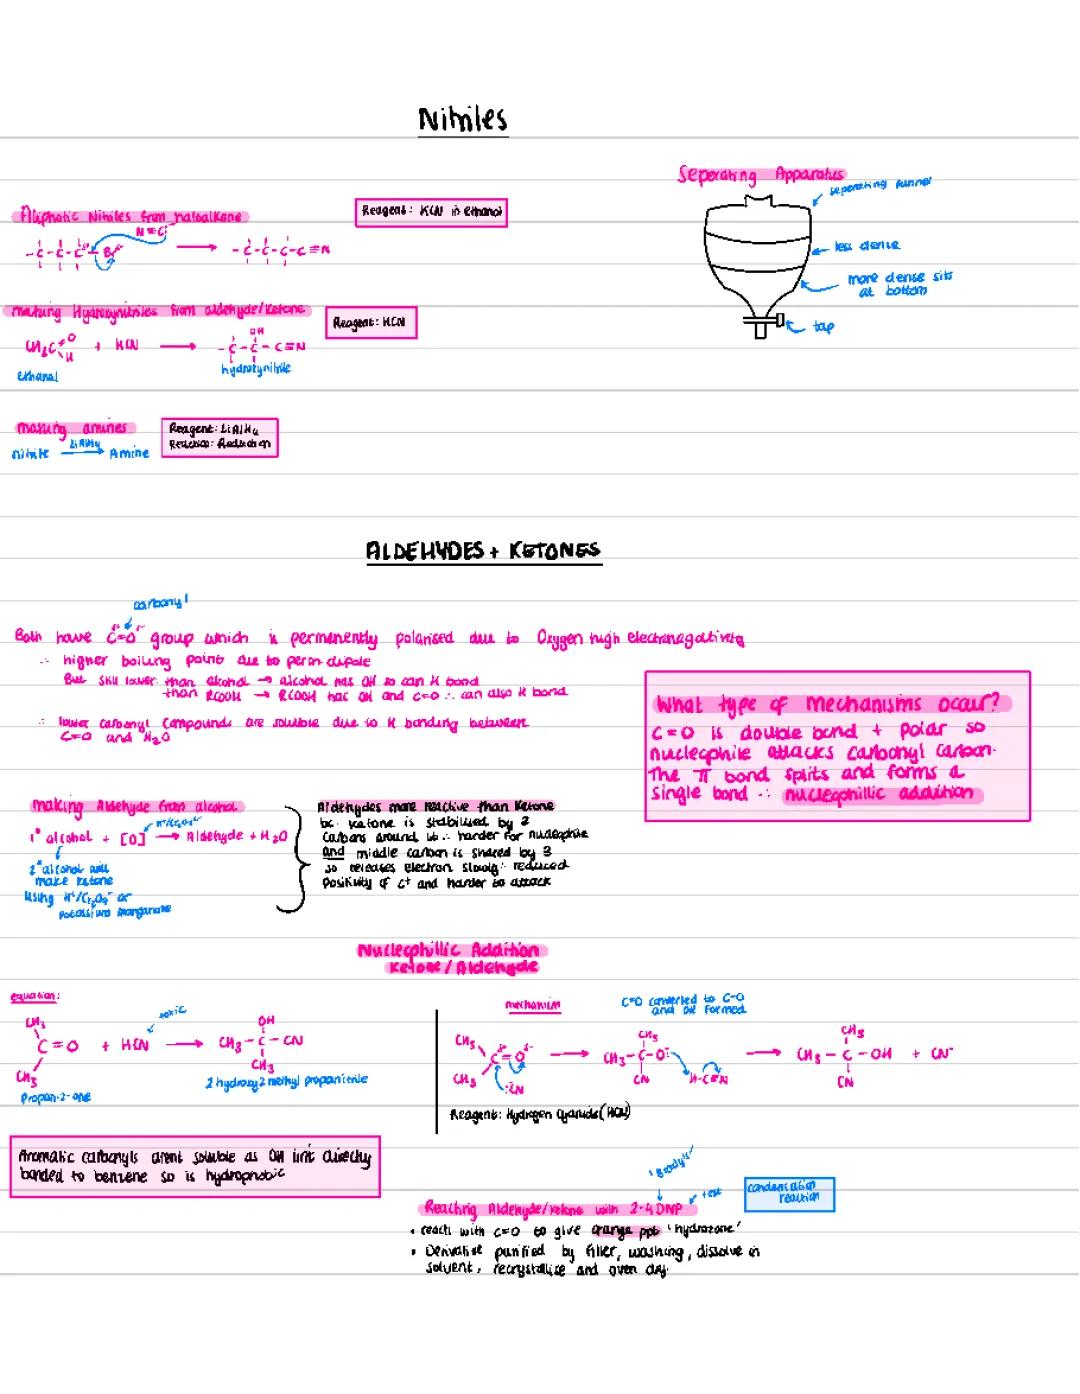 Nitriles
Seperating Apparatus
seperating funnel
less dense
more dense sits
at bottom
tap
Aliphatic Nitriles from haloalkane
Reagent: KCN in ethanol
N≡C:
-C-C-C-Br → -C-C-C-C≡N
making Hydroxynitriles from aldehyde/ketone
Reagent: HCN
CH₃C=O H + HCN → -C-C-C≡N
OH
ethanal
hydroxynitrile
making amines
Reagent: LiAlH₄
Reaction: Reduction
nitrile LiAlH₄ → Amine
ALDEHYDES + KETONES
carbonyl
Both have C=O group which is permenently polarised due to Oxygen high electronegativity
∴ higher boiling point due to perm dipole
But still lower than alcohol → alcohol has OH so can H bond
than RCOOH → RCOOH has OH and C=O ∴ can also H bond
∴ lower carbonyl compounds are soluble due to H bonding between
C=O and H₂O
What type of mechanisms occur?
C=O is double bond + polar so
nucleophile attacks carbonyl carbon.
The π bond splits and forms a
single bond ∴ nucleophillic addition
making Aldehyde from alcohol
1° alcohol + [O] → Aldehyde + H₂O
2° alcohol will
make ketone
using H⁺/Cr₂O₇²⁻ or
potassium manganate
Aldehydes more reactive than ketone
bc ketone is stabilised by 2
carbons around it ∴ harder for nucleophile
and middle carbon is shared by 3
so releases electron slowly ∴ reduced
positivity of C⁺ and harder to attack
Nucleophillic Addition
Ketone/Aldehyde
equation:
toxic
CH₃
C=O + HCN → CH₃-C-CN
OH
CH₃
CH₃
propan-2-one
2 hydroxy 2 methyl propanitrile
mechanism
C=O converted to C-O
and OH formed
CH₃
C=O
CH₃
:CN
→
CH₃
CH₃-C-O:⁻
CN
H-C≡N
→
CH₃
CH₃-C-OH + CN⁻
CN
Reagent: Hydrogen Cyanide (HCN)
Aromatic carbonyls arent soluble as OH isnt directly
bonded to benzene so is hydrophobic
'Bradys'
test
condensation
reaction
Reacting Aldehyde/ketone with 2-4 DNP
• react with C=O to give orange ppt 'hydrazone'
• Derivative purified by filter, washing, dissolve in
solvent, recrystallise and oven dry.